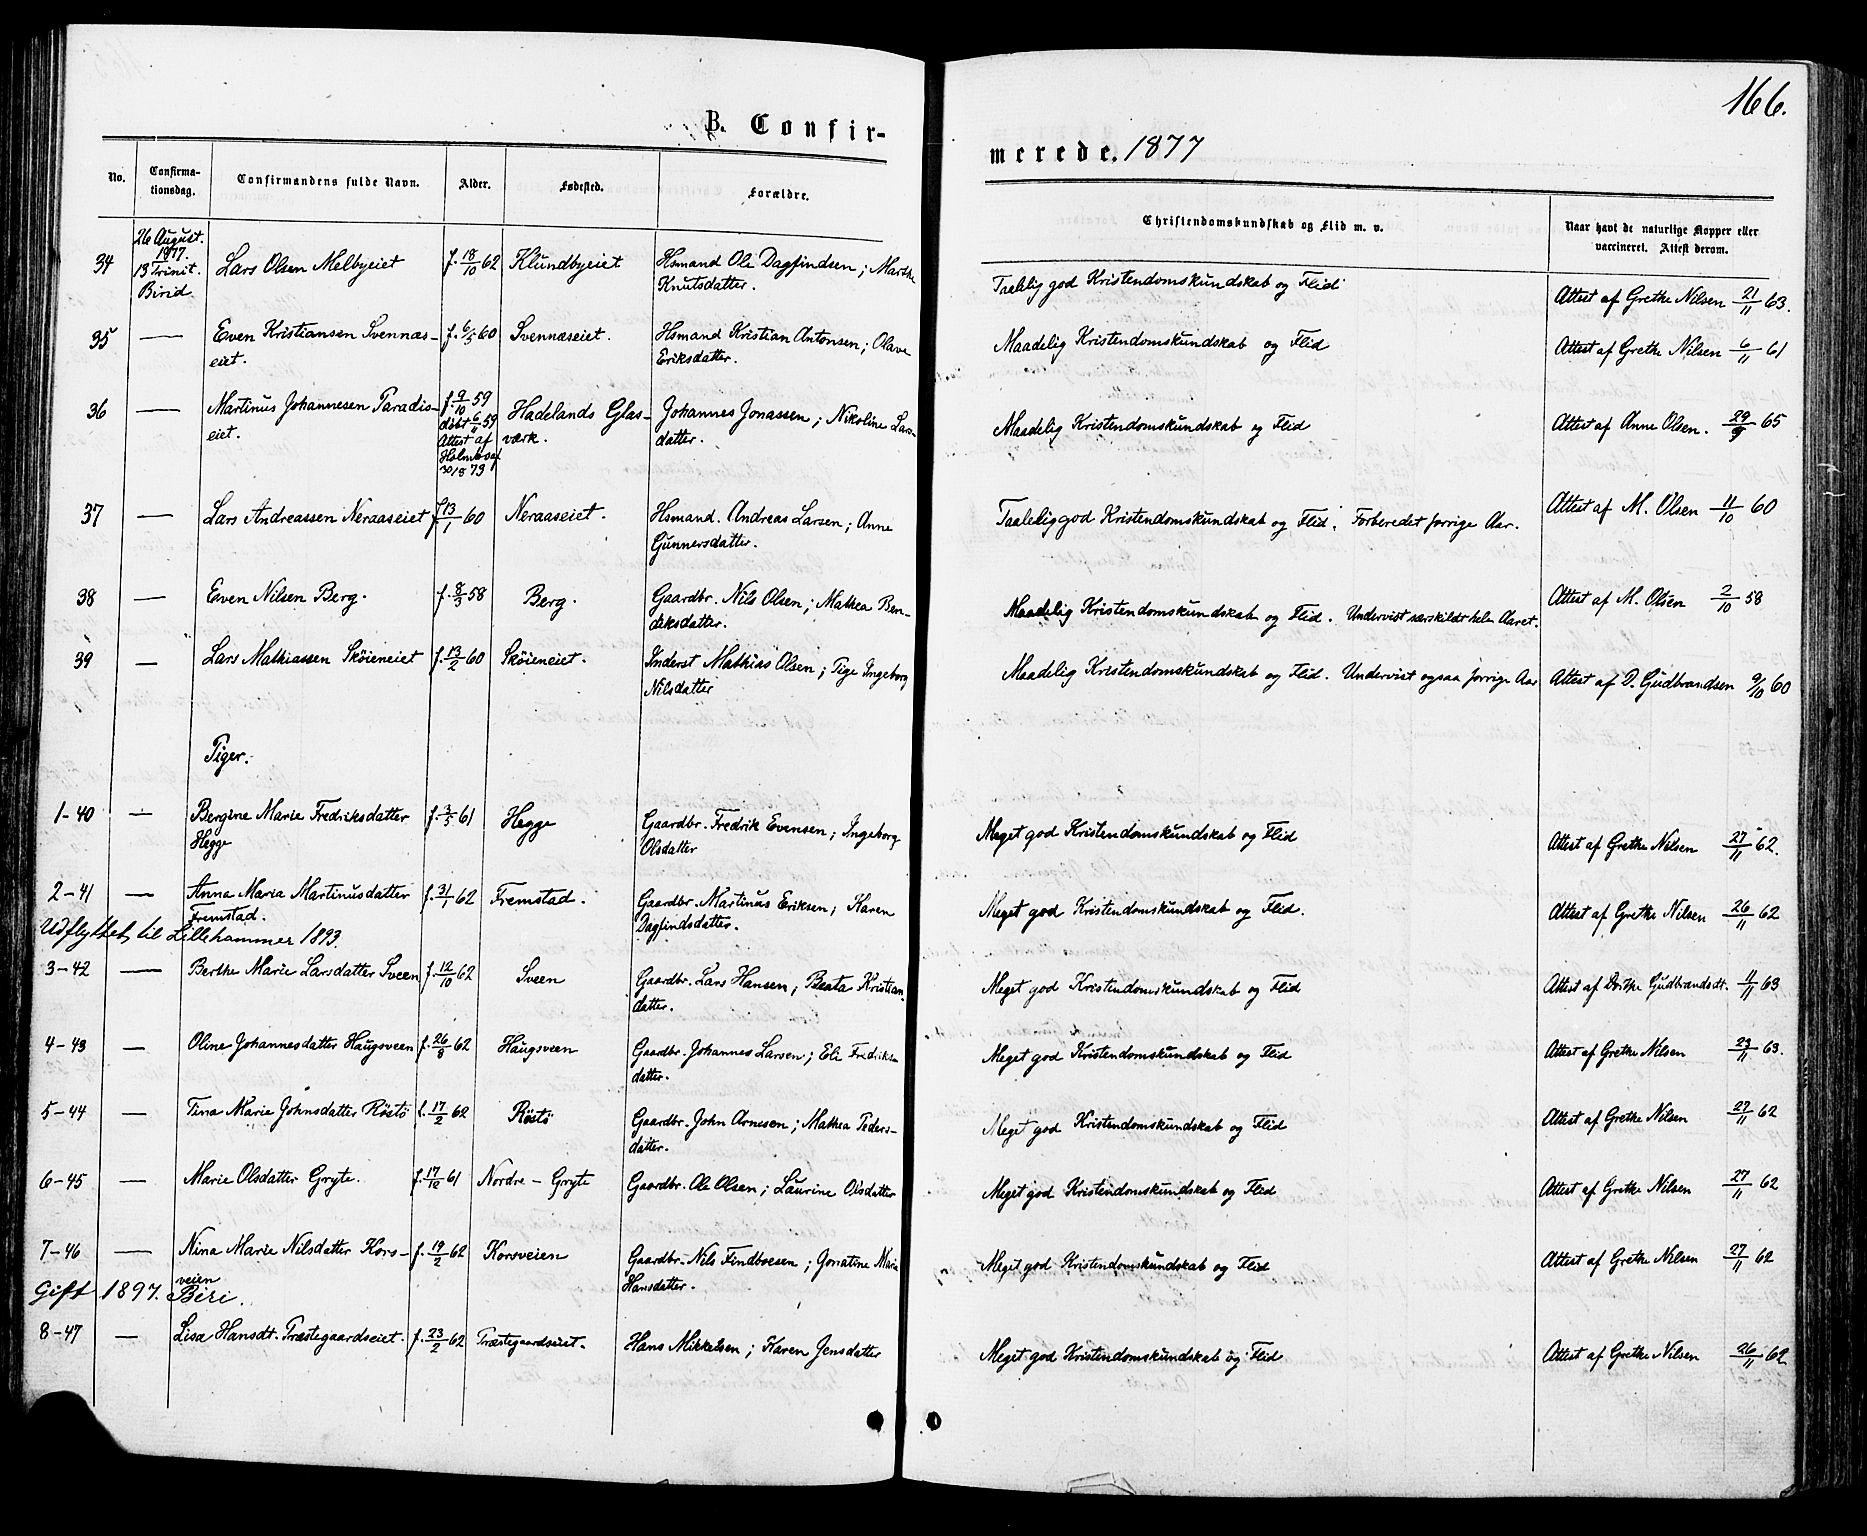 166.
B. Confir-
merede. 1877
No. Confirma-tionsdag. Confirmandens fulde Navn. Alder. Fødested. Forældre. Christendomskundskab og Flid m. v. Naar havt de naturlige Kopper eller vaccineret. Attest derom.
26 August.
1877.
13 Trinit.
Birid.
34 Lars Olsen Melbyeiet f. 18/10 62 Klundbyeiet Hsmand Ole Dagfindsen; Marthe Taalelig god Kristendomskundskab og Flid Attest af Grethe Nilsen 21/11 63.
Knutsdatter.
35 — Even Kristiansen Svennæs- f. 6/5 60 Svennæseiet. Hsmand Kristian Antonsen; Olave Maadelig Kristendomskundskab og Flid Attest af Grethe Nilsen 6/11 61
eiet. Eriksdatter.
36 — Martinus Johannesen Paradis- f. 9/10 59 Hadelands Glas- Johannes Jonassen; Nikoline Lars- Maadelig Kristendomskundskab og Flid Attest af Anne Olsen. 29/9 65
eiet. døbt 6/11 59 værk. datter.
Attest af
30/8 73
37 — Lars Andreassen Neraaseiet f. 13/1 60 Neraaseiet. Hsmand. Andreas Larsen; Anne Taalelig god Kristendomskundskab og Flid. Forberedet forrige Aar. Attest af M. Olsen 11/10 60
Gunnersdatter.
38 — Even Nilsen Berg. f. 8/3 58 Berg. Gaardbr. Nils Olsen; Mathea Ben- Maadelig Kristendomskundskab og Flid. Undervist særskildt hele Aaret. Attest af M. Olsen 2/10 58
diksdatter.
39 — Lars Mathiassen Skøieneiet f. 13/2 60 Skøieneiet. Inderst Mathias Olsen; Pige Ingeborg Maadelig Kristendomskundskab og Flid. Undervist ogsaa forrige Aar Attest af D. Gudbrandsen 9/10 60
Nilsdatter
Piger.
1-40 — Bergine Marie Fredriksdatter f. 3/3 61 Hegge Gaardbr. Fredrik Evensen; Ingeborg Meget god Kristendomskundskab og Flid Attest af Grethe Nilsen 27/11 62.
Hegge Olsdatter
2-41 — Anna Maria Martinusdatter f. 31/1 62 Fremstad. Gaardbr. Martinus Eriksen; Karen Meget god Kristendomskundskab og Flid. Attest af Grethe Nilsen 26/11 62
Fremstad. Dagfindsdatter.
Udflyttet til Lillehammer 1893.
3-42 — Berthe Marie Larsdatter Sveen f. 12/10 62 Sveen Gaardbr. Lars Hansen; Beata Kristian- Meget god Kristendomskundskab og Flid Attest af Dorthe Gudbrandsdt. 11/11 63
datter.
4-43 — Oline Johannesdatter Haugsveen f. 26/8 62 Haugsveen Gaardbr. Johannes Larsen; Eli Fredriks Meget god Kristendomskundskab og Flid Attest af Grethe Nilsen 23/11 63.
datter.
5-44 — Tina Marie Johnsdatter Røstø f. 17/2 62 Røstø Gaardbr. John Arnesen; Mathea Peders- Meget god Kristendomskundskab og Flid Attest af Grethe Nilsen 27/11 62
datter.
6-45 — Marie Olsdatter Gryte. f. 17/12 61 Nordre-Gryte Gaardbr. Ole Olsen; Laurine Olsdatter Meget god Kristendomskundskab og Flid Attest af Grethe Nilsen 27/11 62
7-46 — Nina Marie Nilsdatter Kors- f. 19/2 62 Korsveien Gaardbr. Nils Findboesen; Jonatine Marie Meget god Kristendomskundskab og Flid Attest af Grethe Nilsen 27/11 62
veien Hansdatter.
Gift 1897. Biri.
8-47 — Lisa Hansdt. Præstegaardseiet. f. 23/2 62 Præstegaardseiet. Hans Mikkelsen; Karen Jensdatter Meget god Kristendomskundskab og Flid Attest af Grethe Nilsen 26/11 62